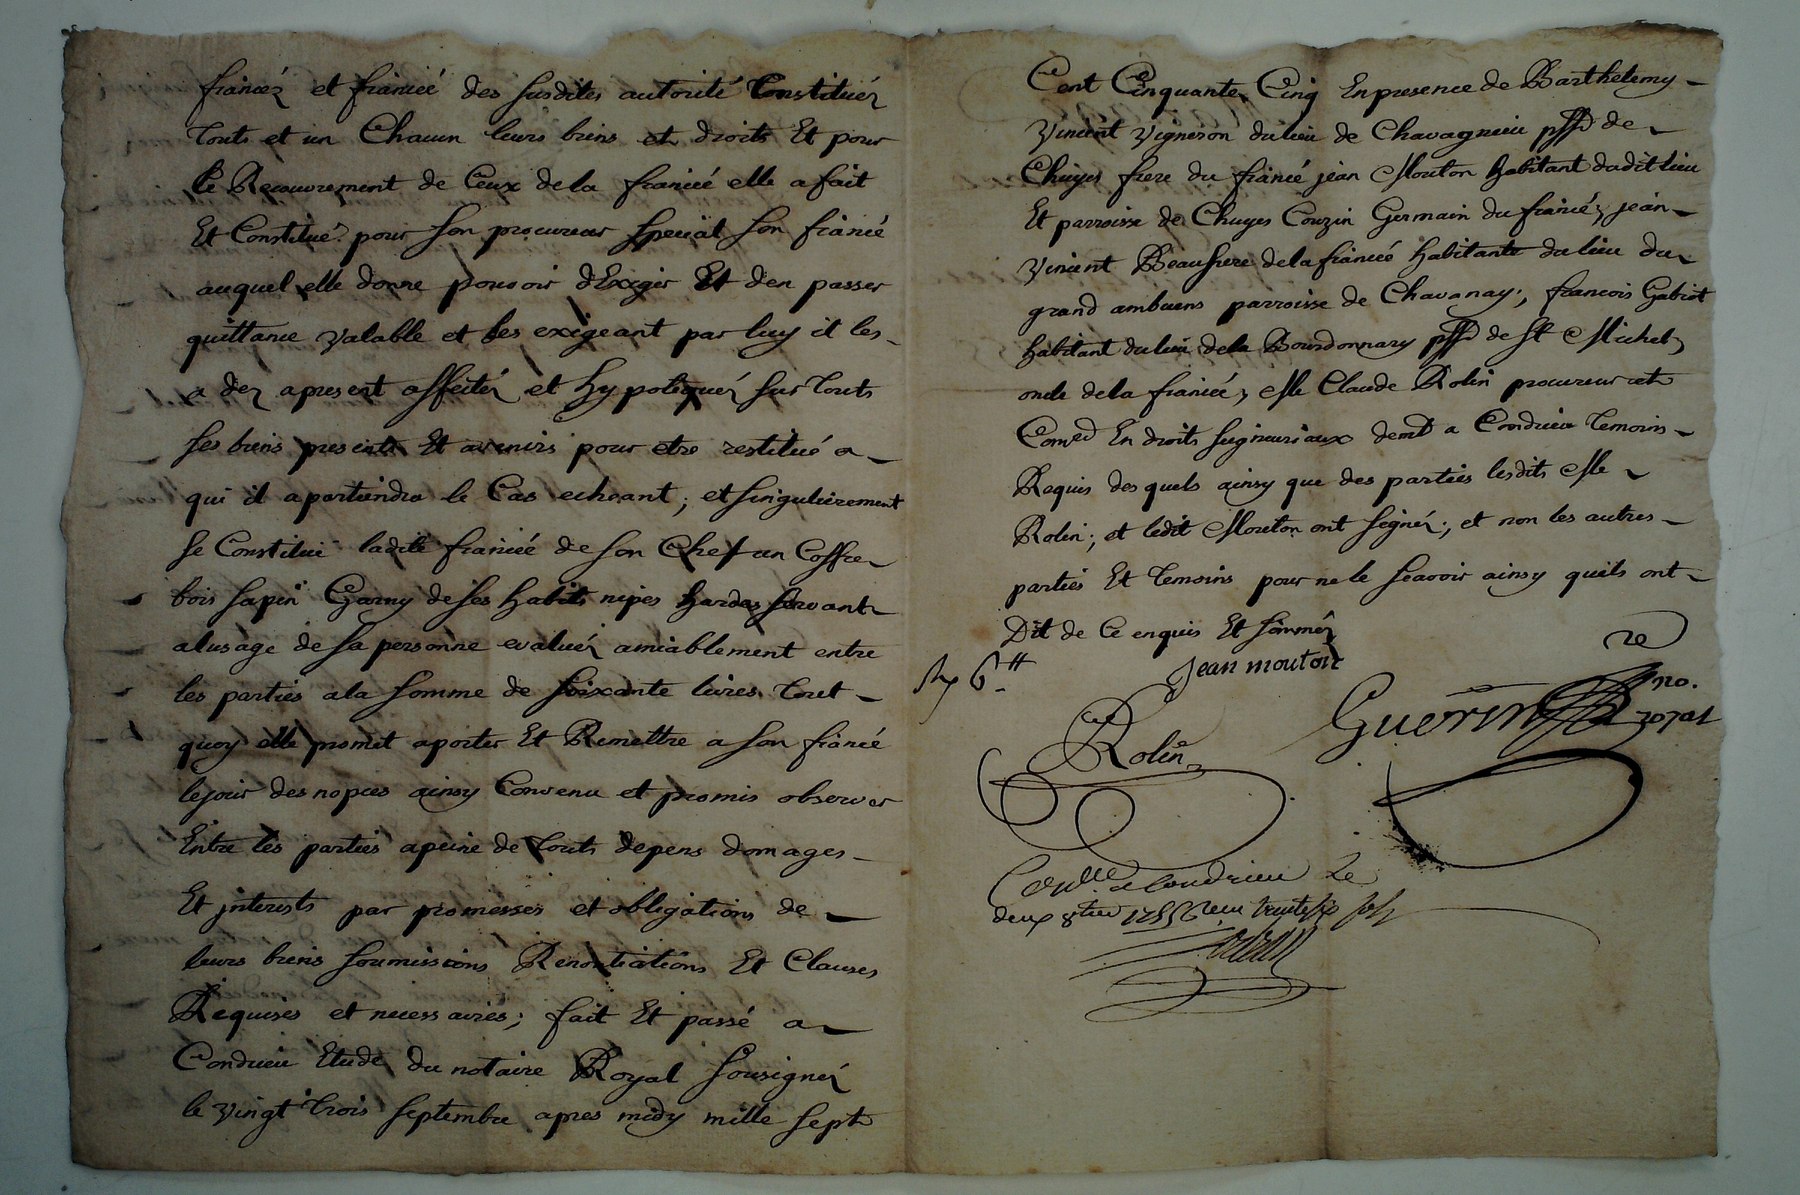 fiancéz et fiancéé des susdites autorité Constituéz
Touts et un Chacun leurs biens et droits Et pour
le Recouvrement de Ceux dela fiancéé elle a fait
Et Constitué pour son procureur special son fiancé
auquel elle donne pouvoir dExiger Et den passer
quittance valable et les exigeant par luy il les
a dez apresent affectéz et hypotequéz sur Touts
ses biens presents Et avenirs pour etre restitué a
qui il apartiendra le Cas echeant; et singulierement
se Constitue ladite fiancéé de son Chef un Coffre
bois sapin Garny de ses habits nipes hardes servant
alusage de sa personne evaluéz amiablement entre
les parties ala somme de soixante livres Tout
quoy elle promet aporter Et Remettre a son fiancé
lejour des nopces ainsy Convenu et promis observer
Entre les parties apeine de Touts depens domages
Et jnterests par promesses et obligations de
leurs biens soumissions Renontiations Et Clauses
Requises et necessaires; fait Et passé a
Condrieu Etude du notaire Royal sousignéz
le vingt Trois septembre apres midy mille sept
Cent Cinquante Cinq En presence de Barthelemy
Vincent vigneron du lieu de Chavagnieu pssé de
Chuyes frere du fiancé jean Mouton habitant dudit lieu
Et parroisse de Chuyes Couzin Germain du fiancé, jean
Vincent Beaufrere dela fiancéé habitante du lieu du
grand ambuens parroisse de Chavanay, francois Gabiot
habitant du lieu dela Bourdonnary pssé de St Michel
oncle dela fiancéé, Me Claude Rolin procureur et
Comre En droits seigneuriaux demt a Condrieu Temoins
Requis des quels ainsy que des parties lesdits Me
Rolin; et ledit Mouton ont signéz, et non les autres
parties Et Temoins pour ne le sçavoir ainsy quils ont
Dit de Ce enquis Et sommés
jean mouton
Rolin
Guerin
no. royal
Conllé a Condrieu Le
deux 8bre 1755